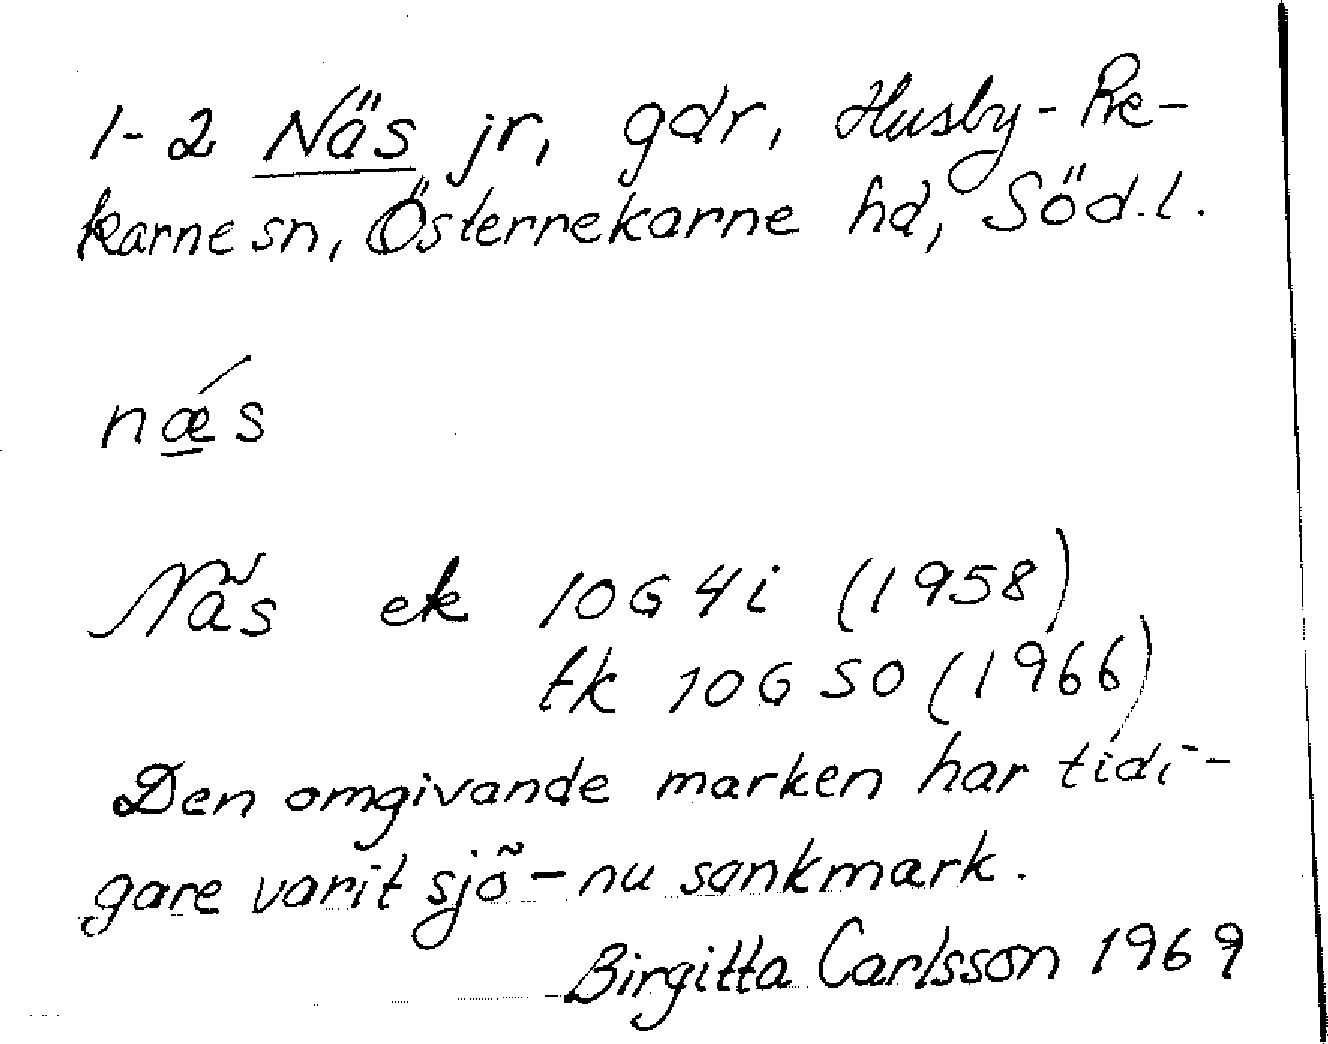 1-2 Näs jr, gdr, Husby-Re-
karne sn, Österrekarne hd, Söd.l.
nǽs
Näs ek 10G 4i (1958)
tk 10G SO (1966)
Den omgivande marken har tidi-
gare varit sjö - nu sankmark.
Birgitta Carlsson 1969